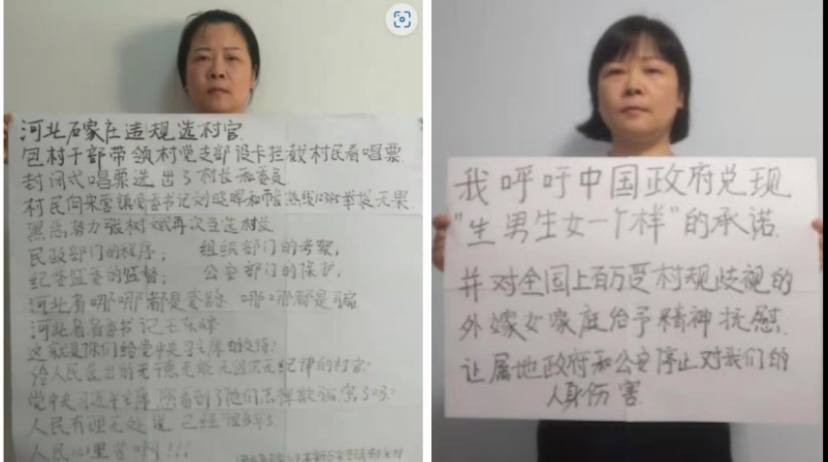 河北石家庄违规选村官
包村干部带领村党支部设卡拦截村民看唱票
封闭式唱票选出了村长和委员
村民向宋营镇党委书记刘晓晖和市长热线12345举报无果
黑恶势力张树娥再次当选村长
民政部门的程序； 组织部门的考察，
纪委监委的监督； 公安部门的保护，
河北省哪哪都是套路 哪哪都是骗
河北省省委书记王东峰
这就是你们给党中央习主席的交待？
给人民选出的无德无能无组织无纪律的村官？
党中央习近平主席
人民有理无处说 已经很多年了
人民心里苦啊！！！
我呼吁中国政府兑现
"生男生女一个样"的承诺.
并对全国上百万受村规歧视的
外嫁女家庭给予精神抚慰.
让属地政府和公安停止对我们的
人身伤害